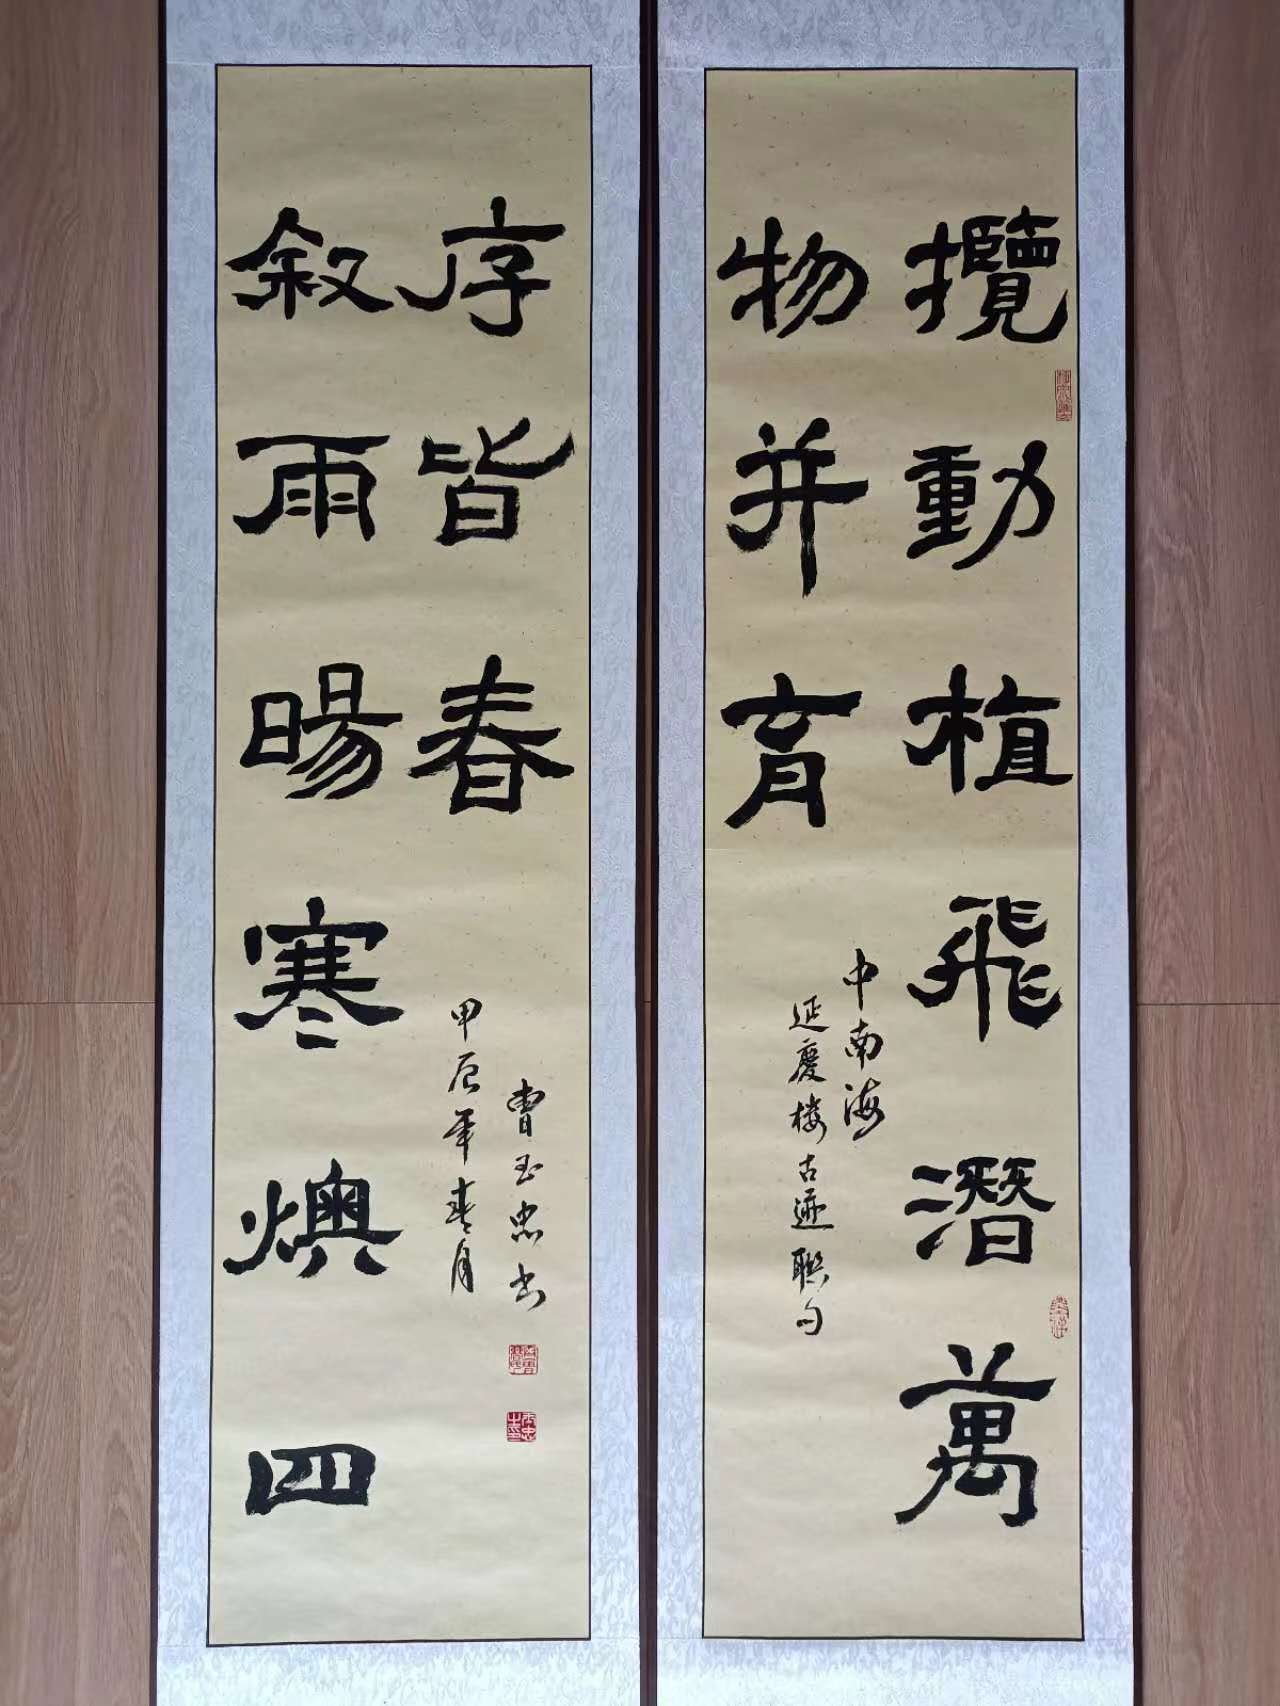 攬動植飛潛萬
物并育
中南海
延慶楼古迹聯句
叙雨暘寒燠四
序皆春
甲辰年春月
曹玉忠书